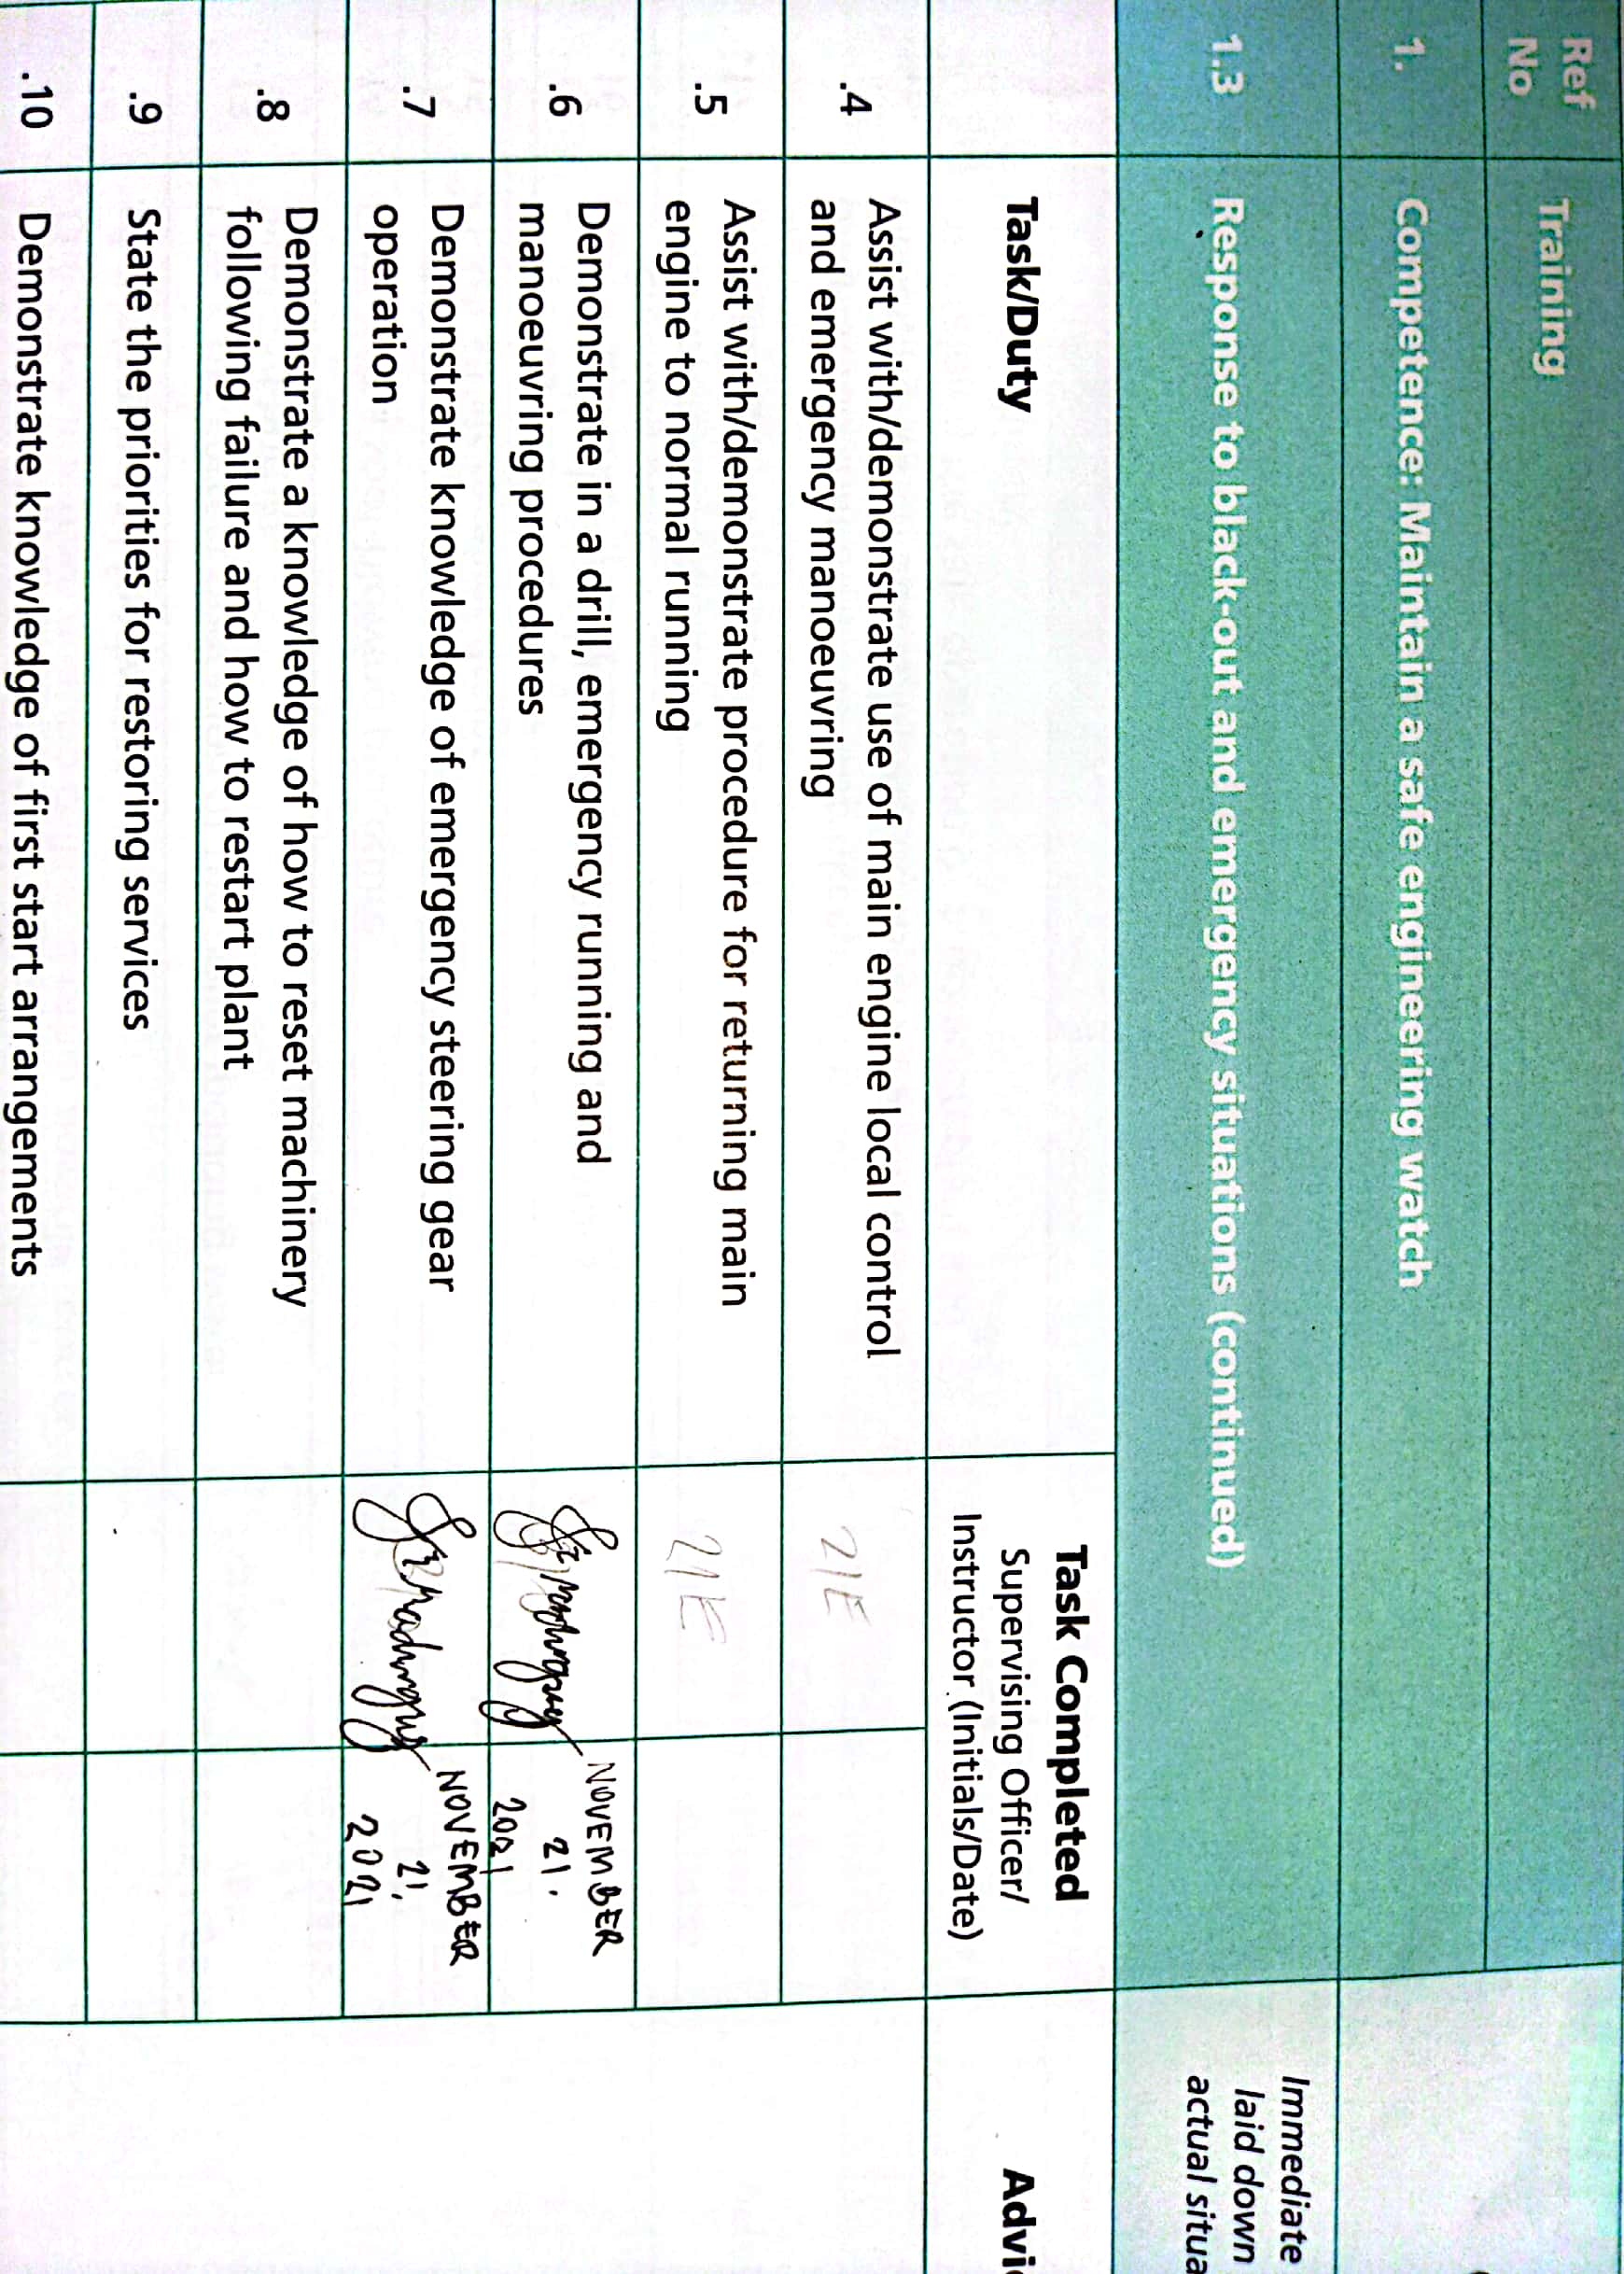 Ref
No
Training
1.
Competence: Maintain a safe engineering watch
1.3
Response to black-out and emergency situations (continued)
Immediate
laid down
actual situa
Task/Duty
Task Completed
Supervising Officer/
Instructor (Initials/Date)
Advi
.4
Assist with/demonstrate use of main engine local control
and emergency manoeuvring
21E
.5
Assist with/demonstrate procedure for returning main
engine to normal running
21E
.6
Demonstrate in a drill, emergency running and
manoeuvring procedures
NOVEMBER
21.
2021
.7
Demonstrate knowledge of emergency steering gear
operation
NOVEMBER
21,
2021
.8
Demonstrate a knowledge of how to reset machinery
following failure and how to restart plant
.9
State the priorities for restoring services
.10
Demonstrate knowledge of first start arrangements